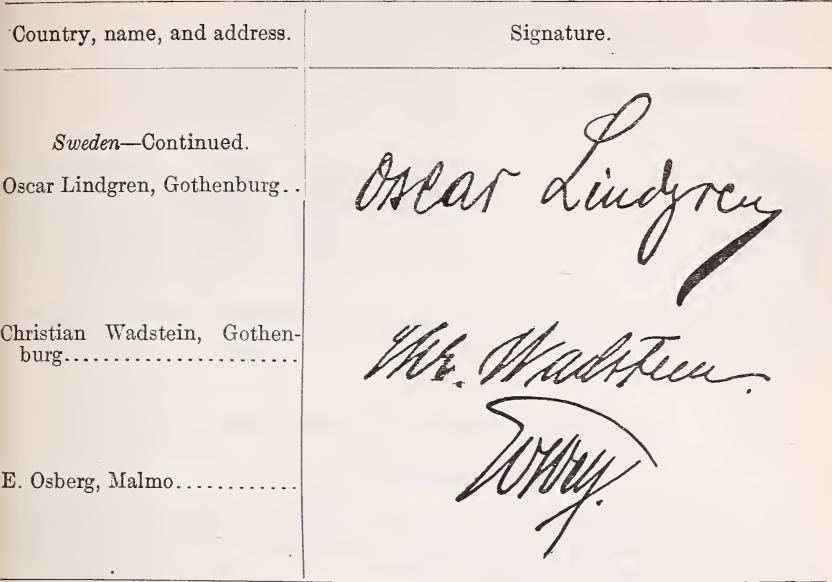 Country, name, and address. Signature.
Sweden—Continued.
Oscar Lindgren, Gothenburg..
Oscar Lindgren
Christian Wadstein, Gothen-
burg......................
Chr. Wadstein.
E. Osberg, Malmo............